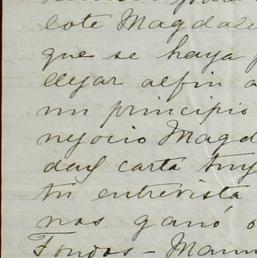 cote Magdale
que se haya p
llegar alfin a
un principio
nejocio Magd
dad carta tuy
tu entrevista
nos ganó o
Fondos - Manu